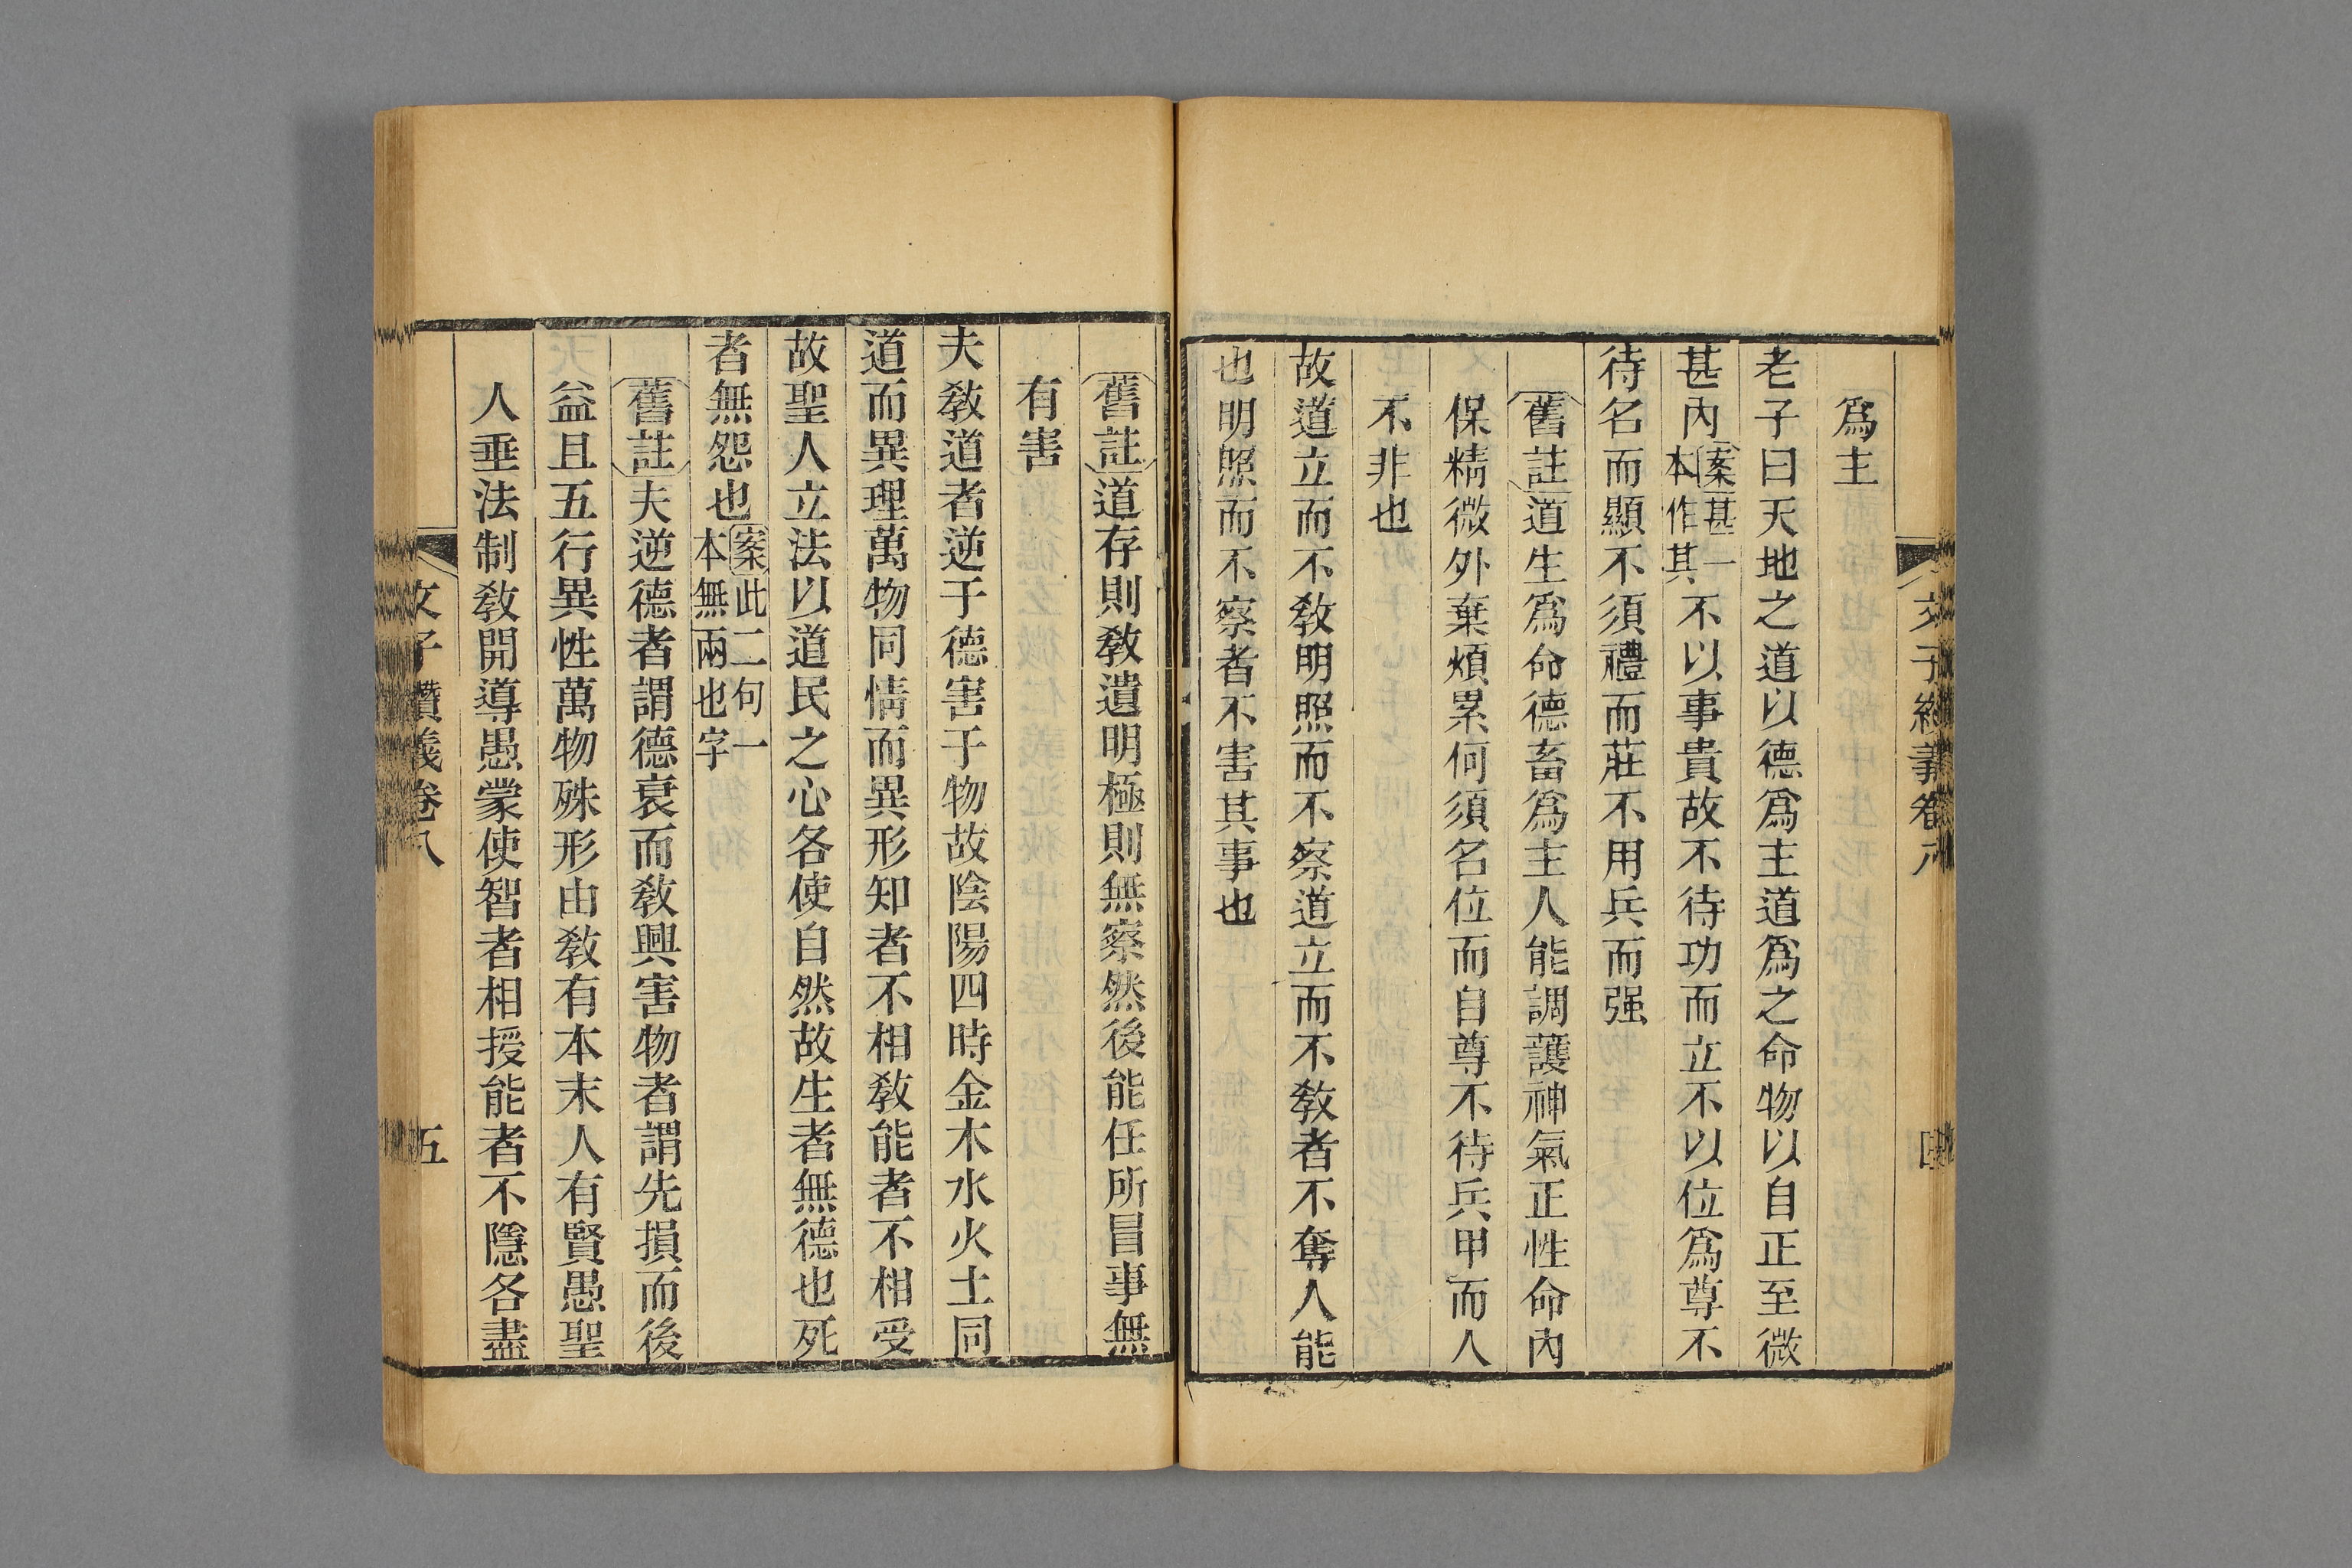 文子纘義卷八
爲主
老子曰天地之道以德爲主道爲之命物以自正至微
甚內案甚一本作其不以事貴故不待功而立不以位爲尊不
待名而顯不須禮而莊不用兵而强
舊註道生爲命德畜爲主人能調護神氣正性命內
保精微外棄煩累何須名位而自尊不待兵甲而人
不非也
故道立而不敎明照而不察道立而不敎者不奪人能
也明照而不察者不害其事也
舊註道存則敎遺明極則無察然後能任所冒事無
有害
夫敎道者逆于德害于物故陰陽四時金木水火土同
道而異理萬物同情而異形知者不相敎能者不相受
故聖人立法以道民之心各使自然故生者無德也死
者無怨也案此二句一本無兩也字
舊註夫逆德者謂德衰而敎興害物者謂先損而後
益且五行異性萬物殊形由敎有本末人有賢愚聖
人垂法制敎開導愚蒙使智者相授能者不隱各盡
文子纘義卷八
五